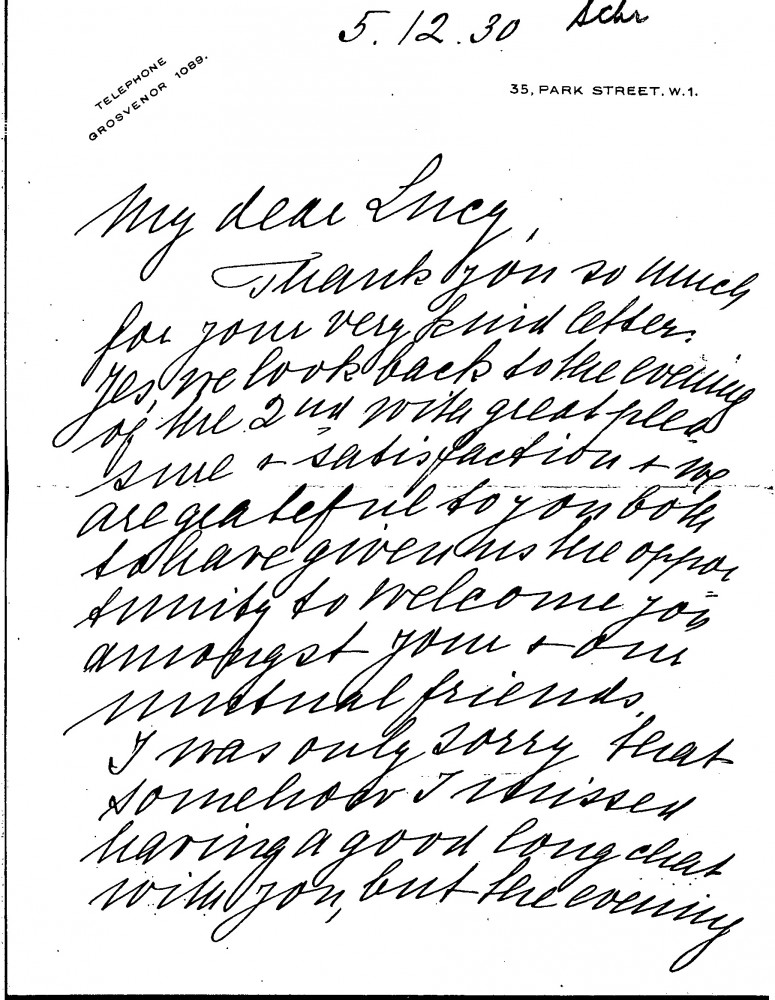 5.12.30 Schr
TELEPHONE
GROSVENOR 1089.
35, PARK STREET. W.1.
My dear Lucy,
Thank you so much
for your very kind letter.
Yes, we look back to the evening
of the 2nd with great plea
sure + satisfaction + we
are grateful to you both
to have given us the oppor
tunity to welcome you
amongst your + our
mutual friends.
I was only sorry that
somehow I missed
having a good long chat
with you, but the evening